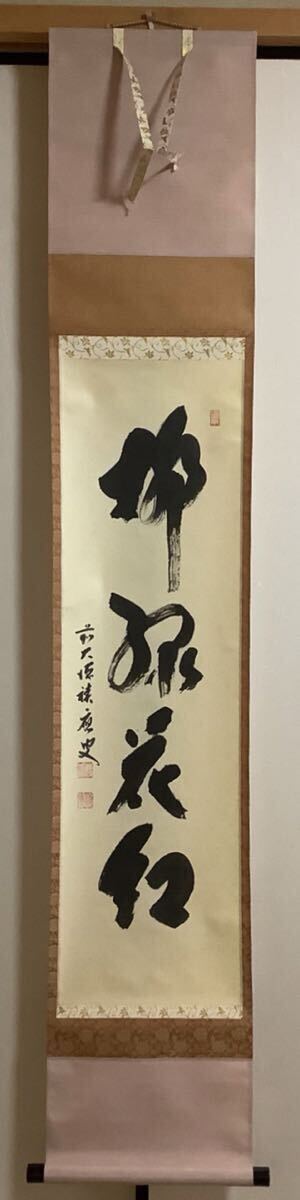 柳緑花紅
前大徳禅應叟